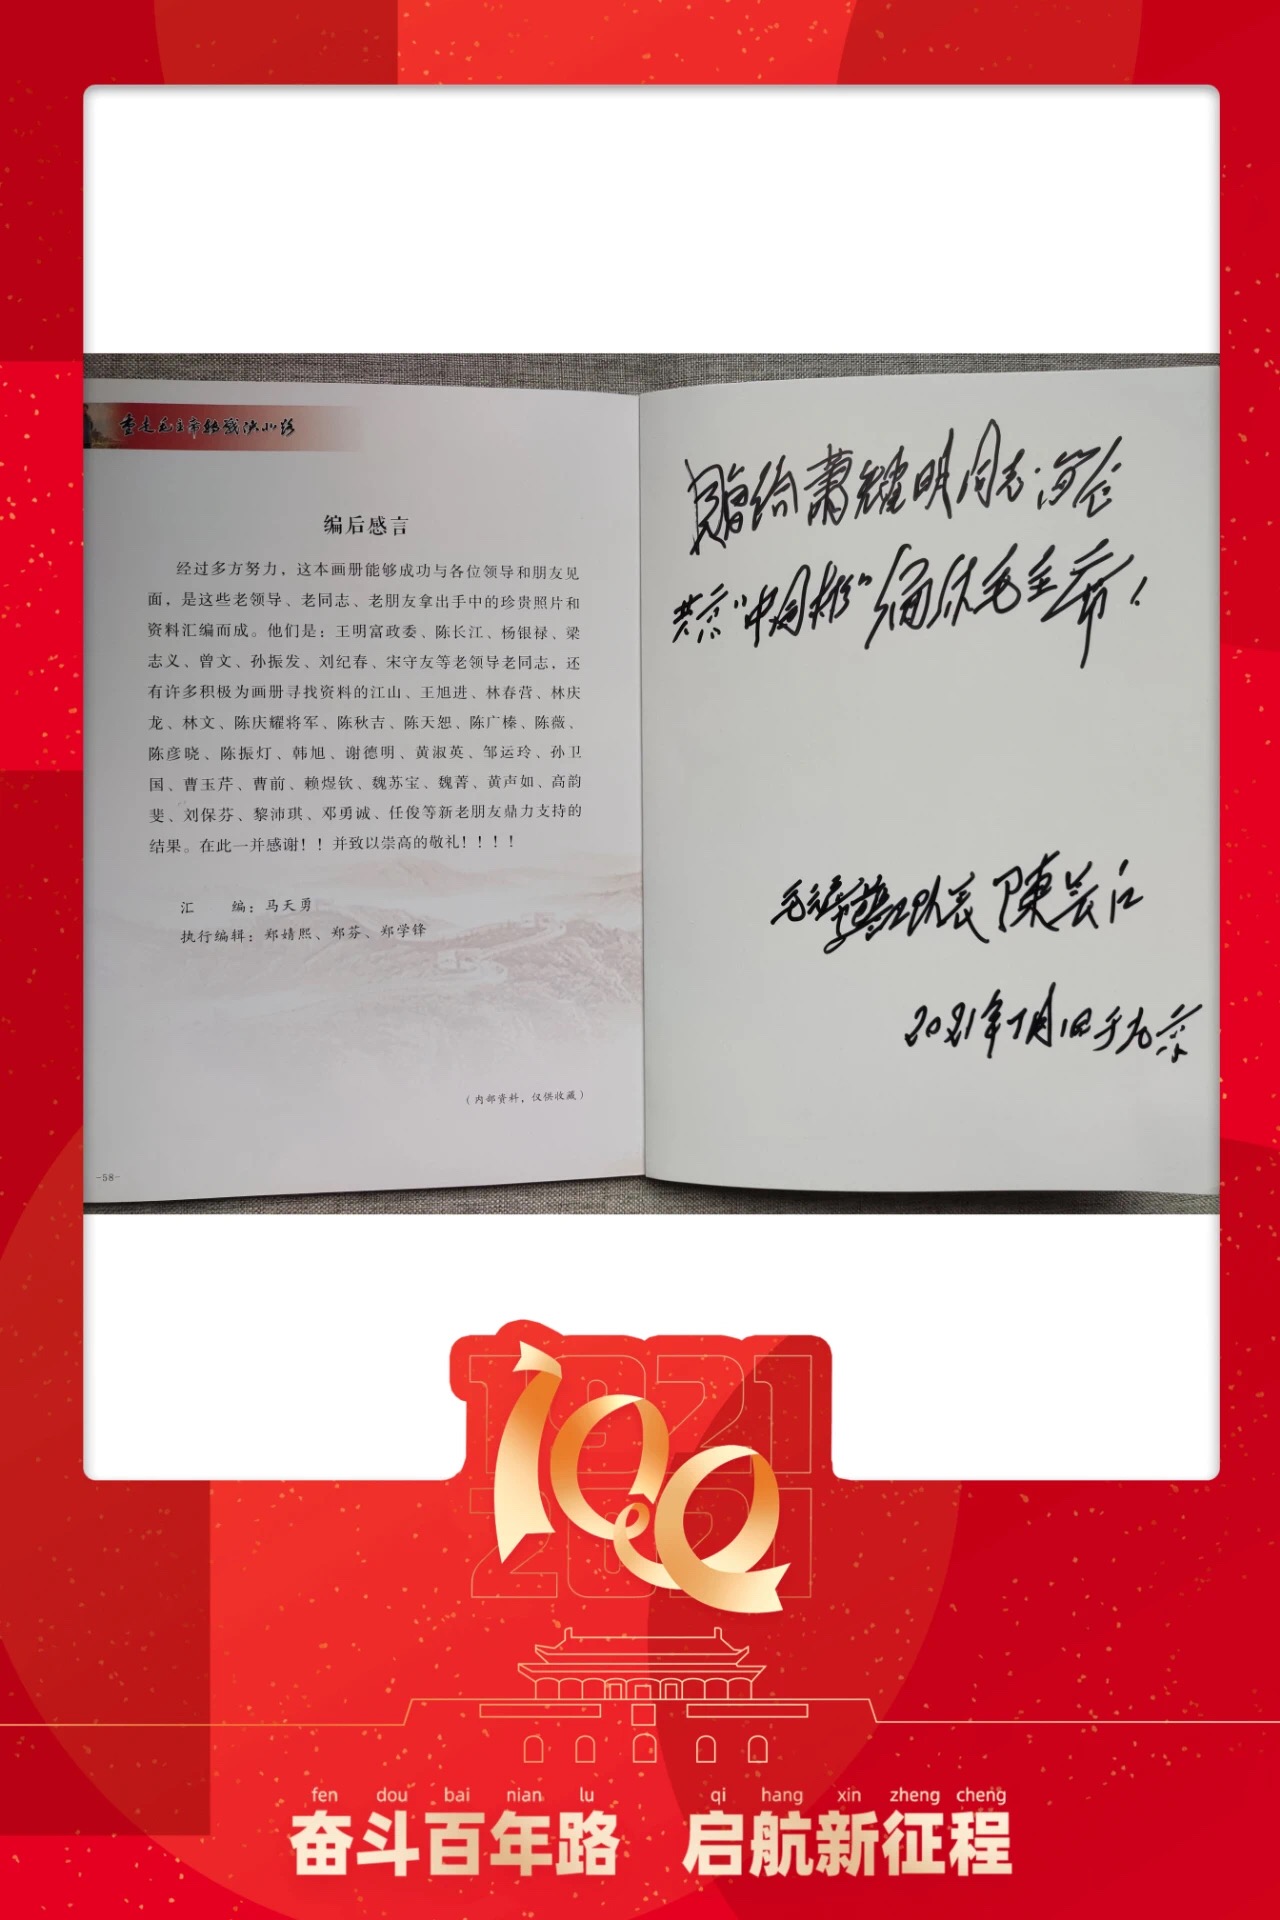 重走毛主席转战陕北路
编后感言
经过多方努力，这本画册能够成功与各位领导和朋友见
面，是这些老领导、老同志、老朋友拿出手中的珍贵照片和
资料汇编而成。他们是：王明富政委、陈长江、杨银禄、梁
志义、曾文、孙振发、刘纪春、宋守友等老领导老同志，还
有许多积极为画册寻找资料的江山、王旭进、林春营、林庆
龙、林文、陈庆耀将军、陈秋吉、陈天恕、陈广榛、陈薇、
陈彦晓、陈振灯、韩旭、谢德明、黄淑英、邹运玲、孙卫
国、曹玉芹、曹前、赖煜钦、魏苏宝、魏菁、黄声如、高韵
斐、刘保芬、黎沛琪、邓勇诚、任俊等新老朋友鼎力支持的
结果。在此一并感谢！！并致以崇高的敬礼！！！！
汇　　编：马天勇
执行编辑：郑婧熙、郑芬、郑学锋
（内部资料，仅供收藏）
-58-
赠给萧耀明同志
毛主席
队长 陳长江
2021年7月1日于北京
1921
2021
100
fen dou bai nian lu qi hang xin zheng cheng
奋斗百年路 启航新征程